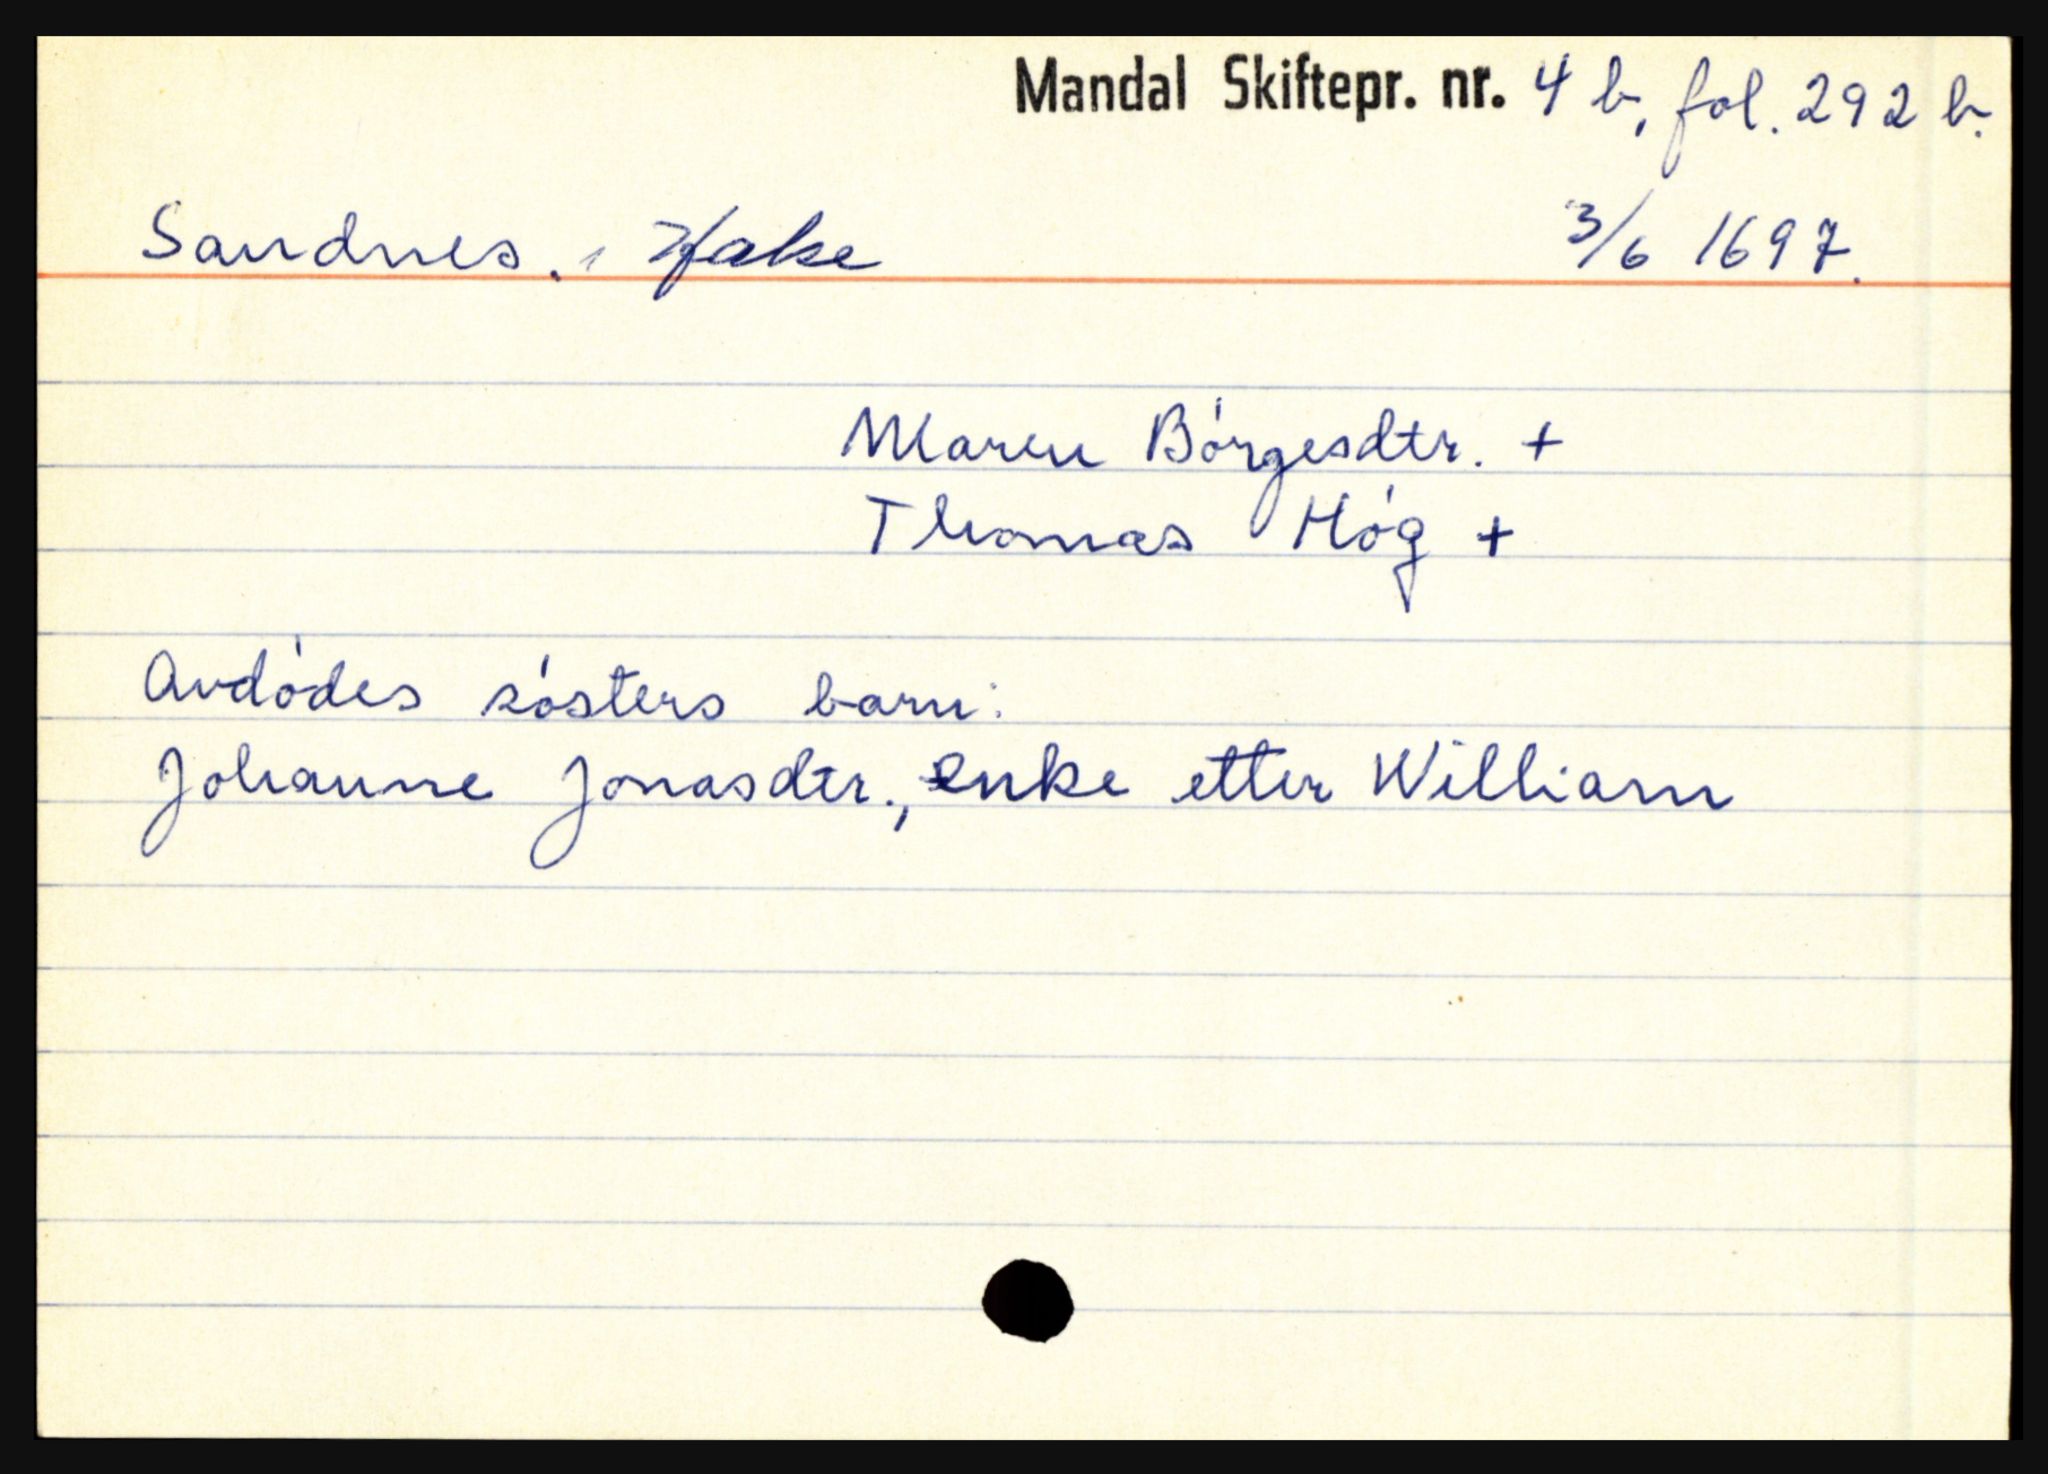 Mandal Skiftepr. nr. 4 b, fol. 292 b.
Sandnes. 3/6 1697.
Maren Börgesdtr. +
Thomas Hög +
Avdödes sösters barn:
Johanne Jonasdtr., enke etter William